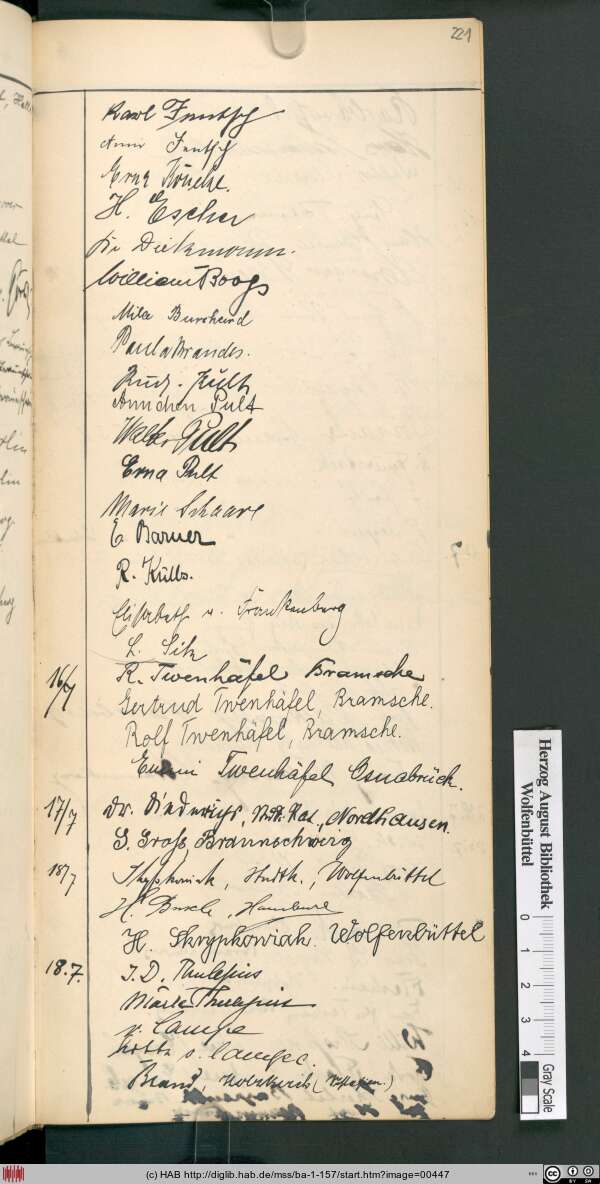 221
Karl Jentsch
Anni Jentsch
Erna
H. Escher
Dr Dieckmann.
William Boogs
Mila Burchard
Paula Brandes.
Rud. Pult
Annchen Pult
Walter Pult
Erna Pult
Marie Schaare
E. Barner
R. Külbs.
Elisabeth v. Frankenberg
L. Sitz
16/7 R. Twenhäfel Bramsche
Gertrud Twenhäfel, Bramsche.
Rolf Twenhäfel, Bramsche.
Emmi Twenhäfel Osnabrück.
17/7 Dr. Diederichs, Nordhausen.
S. Groß Braunschweig
18/7 Skrypkowiak, Wolfenbüttel
H. Busch, Hamburg
H. Skrypkowiak. Wolfenbüttel
18.7. J. D. Thulesius
Thulesius
v. Lampe
v. Lampe.
Brand,
Herzog August Bibliothek
Wolfenbüttel
0
1
2
3
4
Gray Scale
(c) HAB http://diglib.hab.de/mss/ba-1-157/start.htm?image=00447
cc
BY SA